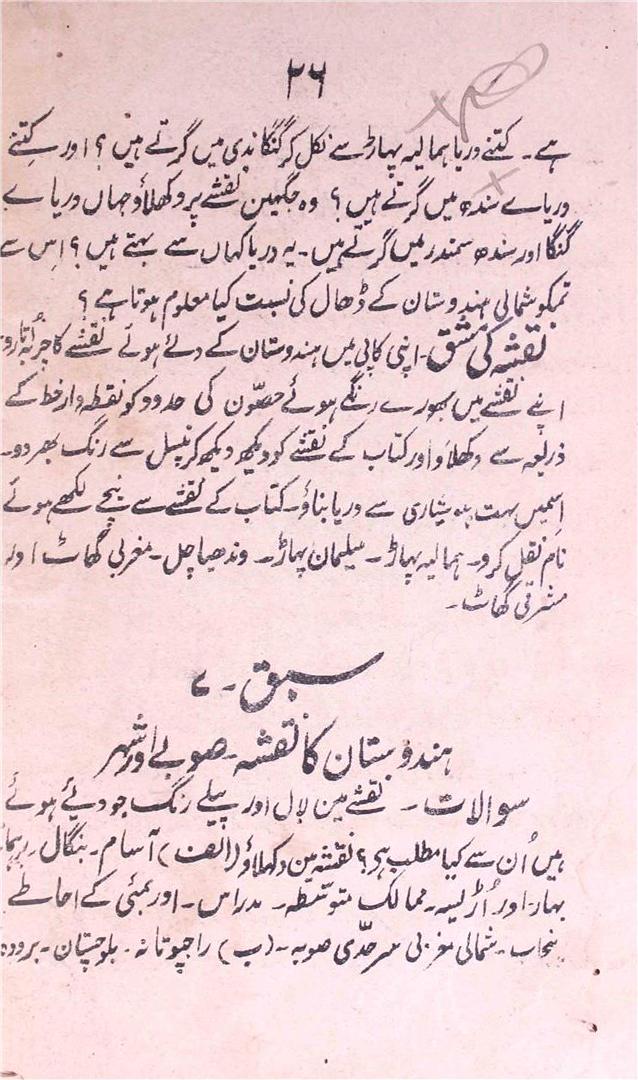 ۲۶
ہے۔ کتنے دریا ہمالیہ پہاڑ سے نکل کر گنگا ندی میں گرتے ہیں؟ اور کتنے
دریاے سندھ میں گرتے ہیں؟ وہ جگہین نقشے پر دکھلاؤ جہاں دریاے
گنگا اور سندھ سمندر میں گرتے ہیں۔ یہ دریا کہاں سے بہتے ہیں؟ اِس سے
تمکو شمالی ہندوستان کے ڈھال کی نسبت کیا معلوم ہوتا ہے؟
نقشہ کی مشق۔ اپنی کاپی میں ہندوستان کے دئے ہوئے نقشے کا چربہ اُتارو
اپنے نقشے میں بھورے رنگے ہوئے حصّون کی حدود کو نقطہ وار خط کے
ذریعہ سے دکھلاؤ اور کتاب کے نقشے کو دیکھ دیکھ کر پنسل سے رنگ بھر دو۔
اِسمیں بہت ہوشیاری سے دریا بناؤ۔ کتاب کے نقشے سے نیچے لکھے ہوئے
نام نقل کرو۔ ہمالیہ پہاڑ۔ سلیمان پہاڑ۔ وندھیاچل۔ مغربی گھاٹ اور
مشرقی گھاٹ۔
سبق۔ ۷
ہندوستان کا نقشہ۔ صوبے اور شہر
سوالات۔ نقشے مین لال اور پیلے رنگ جو دیئے ہوئے
ہیں اُن سے کیا مطلب ہی؟ نقشہ مین دکھلاؤ (الف) آسام۔ بنگال۔ برہما
بہار۔ اور اُڑلیسہ۔ ممالک متوسّطہ۔ مدراس۔ اور بمبئی کے احاطے
پنجاب۔ شمالی مغربی سرحدّی صوبہ۔ (ب) راجپوتانہ۔ بلوچستان۔ برودہ